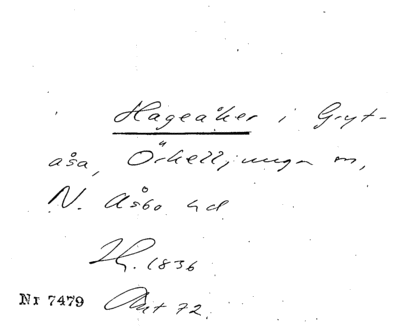 Hageåker i Gryt-
åsa, Örkelljunga sn,
N. Åsbo hd
1836
Nr 7479 Akt 72.